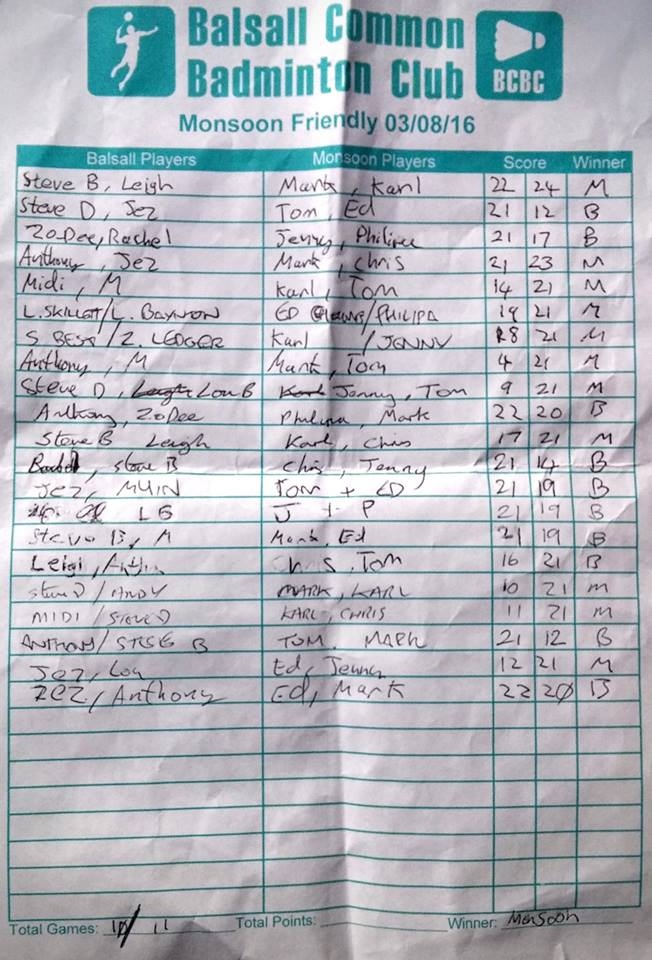 Balsall Common
Badminton Club
BCBC
Monsoon Friendly 03/08/16
Balsall Players Monsoon Players Score Winner
Steve B, Leigh Mark, Karl 22 24 M
Steve D, Jez Tom, Ed 21 12 B
ZoDee, Rachel Jenny, Philipa 21 17 B
Anthony, Jez Mark, Chris 21 23 M
Midi, M Karl, Tom 14 21 M
L. SKILLETT/L. BAYNON ED /PHILIPA 19 21 M
S BESS / Z. LEDGER Karl / JENNY 18 21 M
Anthony, M Mark, Tom 4 21 M
Steve D, Lou B Jenny, Tom 9 21 M
Anthony, ZoDee Philipa, Mark 22 20 B
Steve B Leigh Karl, Chris 17 21 M
, Steve B Chris, Jenny 21 14 B
Jez, Tom + ED 21 19 B
LB J + P 21 19 B
Steve B, M Mark, Ed 21 19 B
Leigh, Tom 16 21 B
Steve D / ANDY MARK, KARL 10 21 M
MIDI / STEVE D KARL, CHRIS 11 21 M
ANTHONY/ STEVE B TOM. MARK 21 12 B
Jez, Lou Ed, Jenny 12 21 M
JEZ, Anthony Ed, Mark 22 20 B
Total Games: 10/ 11 Total Points: Winner: Monsoon